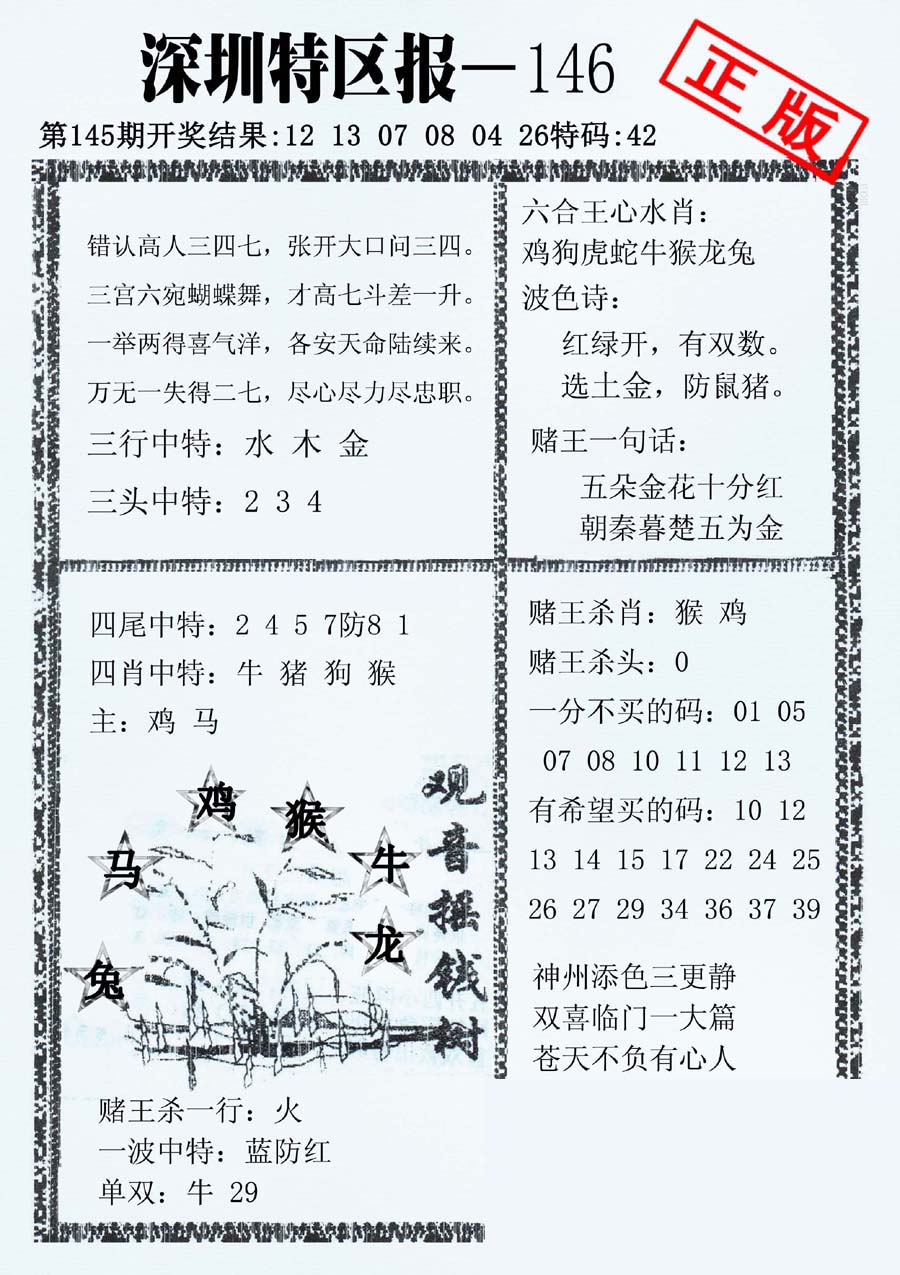 深圳特区报—146
正版
第145期开奖结果:12 13 07 08 04 26特码:42
错认高人三四七，张开大口问三四。
三宫六宛蝴蝶舞，才高七斗差一升。
一举两得喜气洋，各安天命陆续来。
万无一失得二七，尽心尽力尽忠职。
三行中特：水 木 金
三头中特：2 3 4
六合王心水肖：
鸡狗虎蛇牛猴龙兔
波色诗：
红绿开，有双数。
选土金，防鼠猪。
赌王一句话：
五朵金花十分红
朝秦暮楚五为金
四尾中特：2 4 5 7防8 1
四肖中特：牛 猪 狗 猴
主：鸡 马
鸡
猴
马
牛
龙
兔
观音摇钱树
赌王杀一行：火
一波中特：蓝防红
单双：牛 29
赌王杀肖：猴 鸡
赌王杀头：0
一分不买的码：01 05
07 08 10 11 12 13
有希望买的码：10 12
13 14 15 17 22 24 25
26 27 29 34 36 37 39
神州添色三更静
双喜临门一大篇
苍天不负有心人